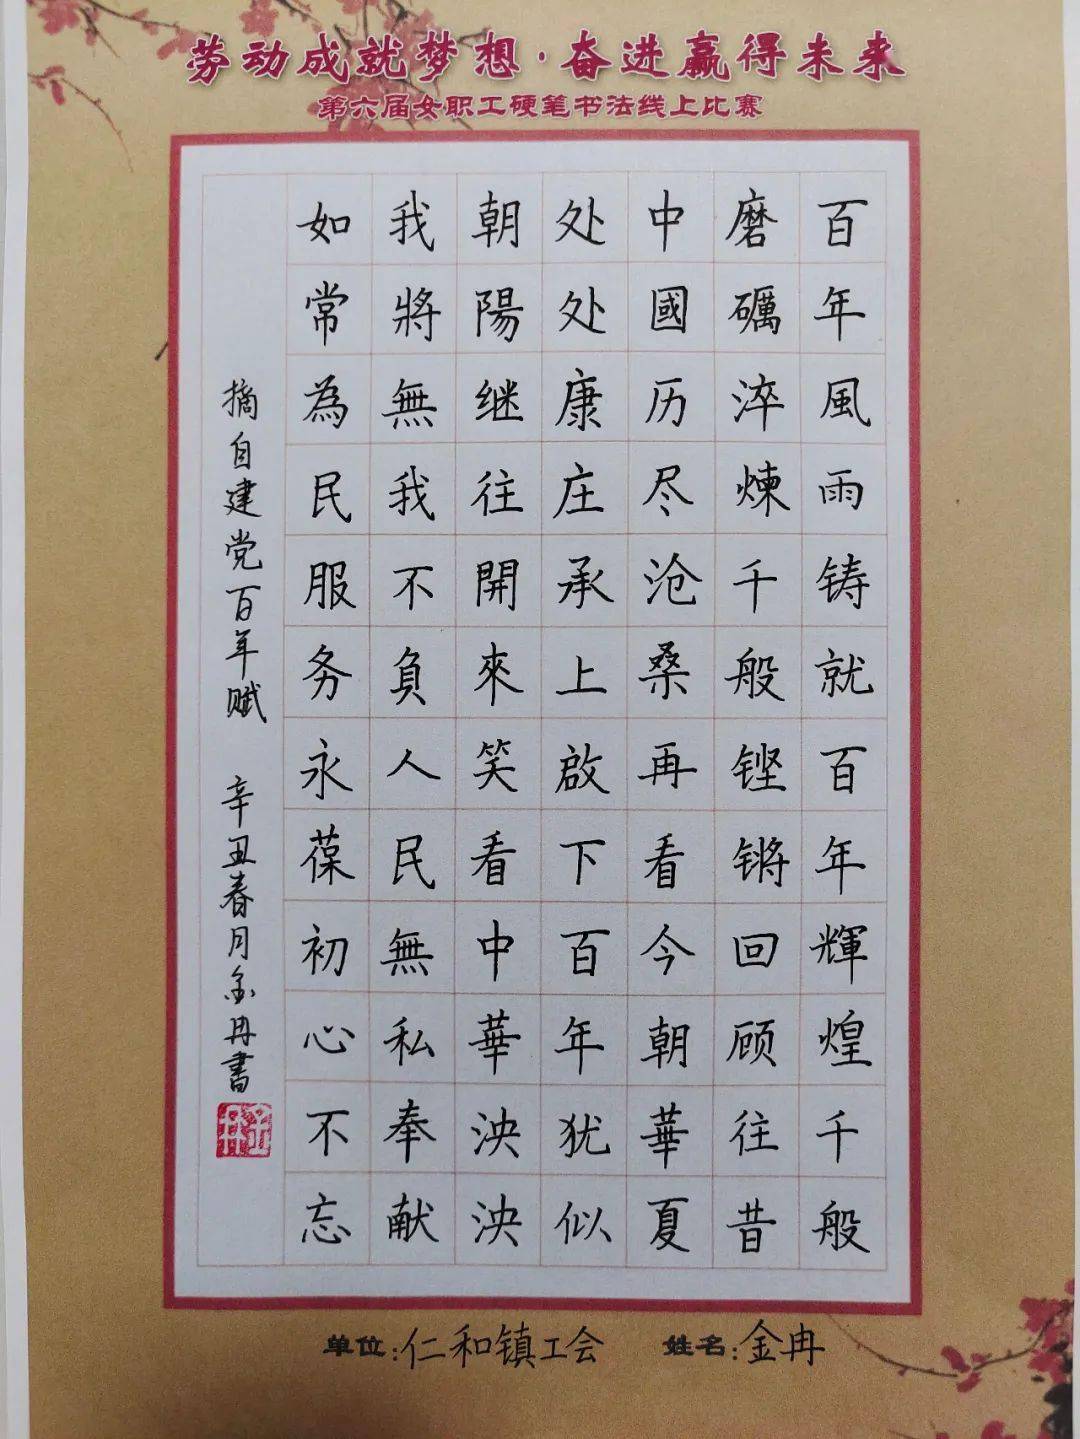 劳动成就梦想·奋进赢得未来
第六届女职工硬笔书法线上比赛
百年風雨铸就百年輝煌千般
磨礪淬煉千般铿锵回顾往昔
中國历尽沧桑再看今朝華夏
处处康庄承上啟下百年犹似
朝陽继往開來笑看中華泱泱
我將無我不負人民無私奉献
如常為民服务永葆初心不忘
摘自建党百年赋 辛丑春月金冉書
金冉
单位:仁和镇工会 姓名:金冉